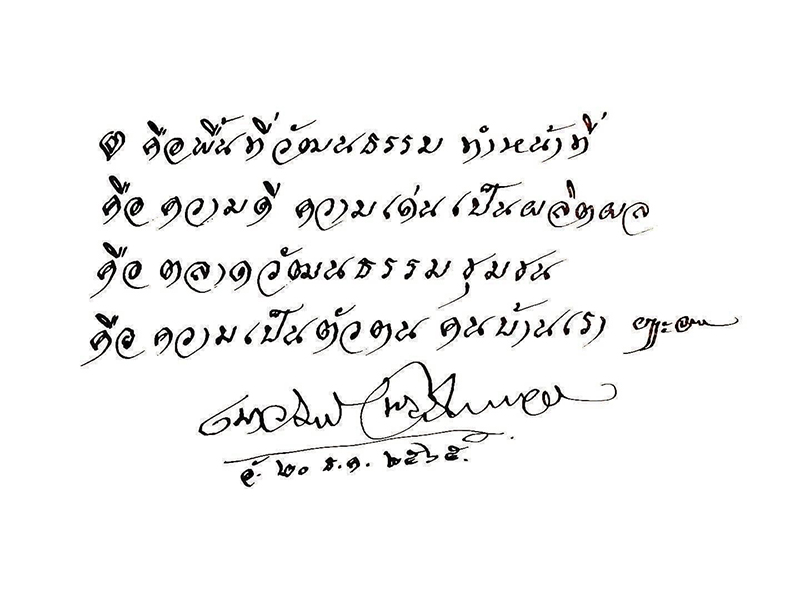 ๏ คือพื้นที่วัฒนธรรม ทำหน้าที่
คือ ความดี ความเด่นเป็นผลิตผล
คือ ตลาดวัฒนธรรมชุมชน
คือ ความเป็นตัวตน คนบ้านเรา
เนาวรัตน์ พงษ์ไพบูลย์
อ. ๒๐ ธ.ค. ๒๕๖๕.